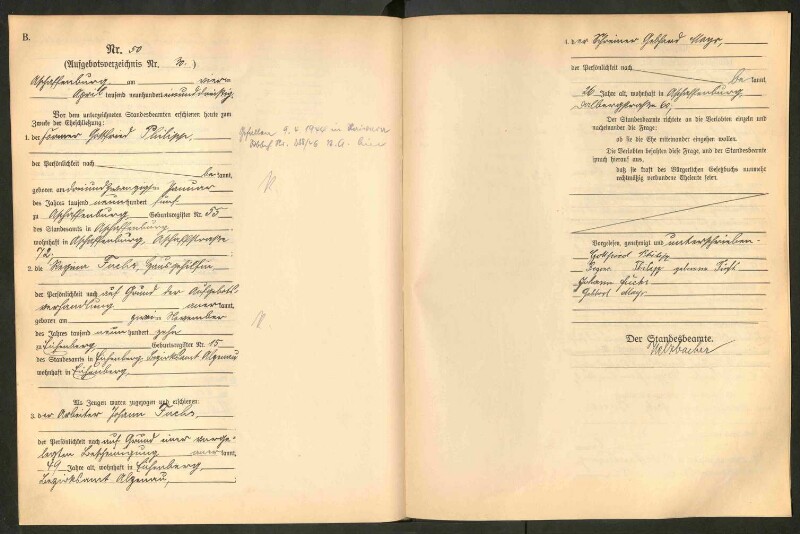 B.
Nr. 50
(Aufgebotsverzeichnis Nr. )
Aschaffenburg am vier-
April tausend neunhundert neununddreißig.
Vor dem unterzeichneten Standesbeamten erschienen heute zum
Zwecke der Eheschließung:
1. der Former Gottfried Philipp,
der Persönlichkeit nach
be kannt,
geboren am dreiundzwanzigsten Januar
des Jahres tausend neunhundert fünf
zu Aschaffenburg, Geburtsregister Nr. 55
des Standesamts in Aschaffenburg
wohnhaft in Aschaffenburg,
72.
2. die Regina Fuchs, Hausgehilfin,
der Persönlichkeit nach auf Grund der Aufgebots-
verhandlung aner kannt,
geboren am November
des Jahres tausend neunhundert zehn
zu Geburtsregister Nr. 15
des Standesamts in Bezirksamt Alzenau
wohnhaft in
Als Zeugen waren zugezogen und erschienen:
3. der Arbeiter Johann Fuchs,
der Persönlichkeit nach auf Grund einer vorge-
legten Bescheinigung aner kannt,
49 Jahre alt, wohnhaft in
Bezirksamt Alzenau,
Gefallen 9. 1944 in
4. der Schreiner Gebhard Mayr,
der Persönlichkeit nach
be kannt,
26 Jahre alt, wohnhaft in Aschaffenburg,
Dalbergstraße 60,
Der Standesbeamte richtete an die Verlobten einzeln und
nacheinander die Frage:
ob sie die Ehe miteinander eingehen wollen.
Die Verlobten bejahten diese Frage, und der Standesbeamte
sprach hierauf aus,
daß sie kraft des Bürgerlichen Gesetzbuchs nunmehr
rechtmäßig verbundene Eheleute seien.
Vorgelesen, genehmigt und unterschrieben.
Gottfried Philipp
Philipp geborene
Johann Fuchs
Gebhard Mayr
Der Standesbeamte.